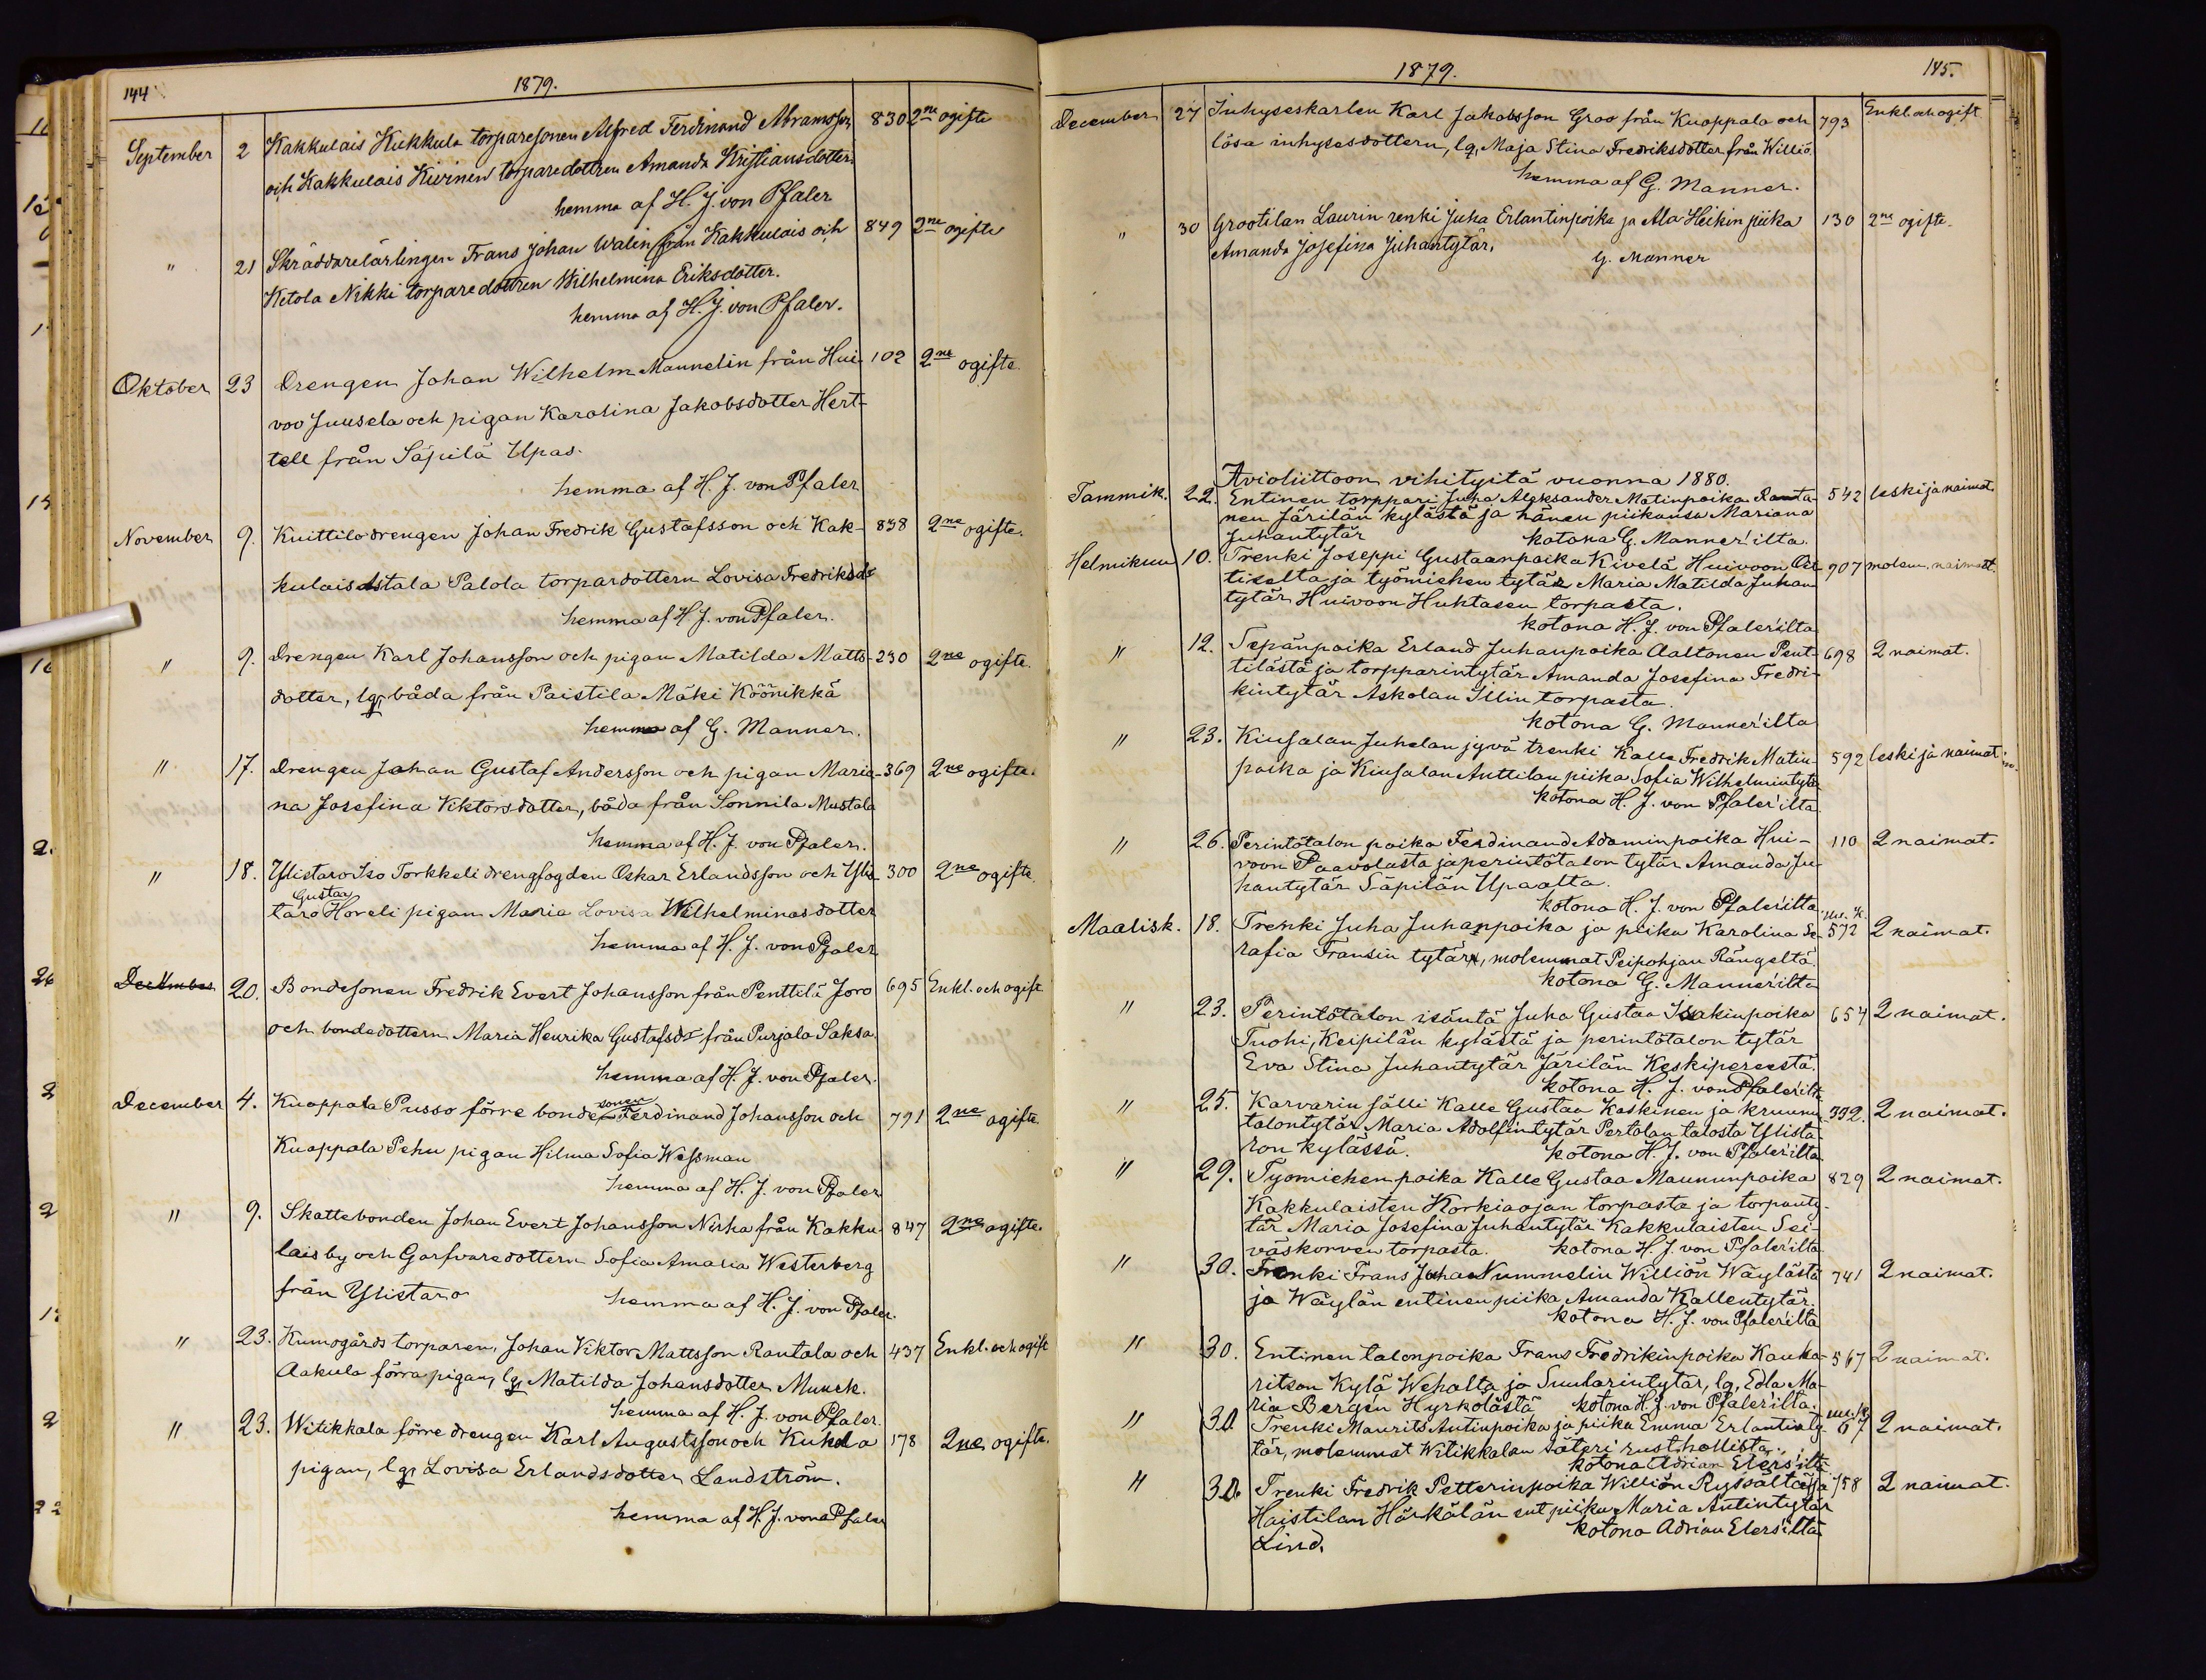 144
1879.
September 2 Kakkulais Kukkula torparesonen Alfred Ferdinand Abramsson 830 2ne ogifte
och Kakkulais Kivinen torparedottren Amanda Kristiansdotter.
hemma af H. J. von Pfaler
" 21 Skräddarelärlingen Frans Johan Walin från Kakkulais och 849 2ne ogifte
Ketola Nikki torparedottren Wilhelmina Eriksdotter.
hemma af H. J. von Pfaler.
Oktober 23 Drengen Johan Wilhelm Mannelin från Hui- 102 2ne ogifte.
voo Juusela och pigan Karolina Jakobsdotter Hert-
tell från Säpilä Upas.
hemma af H. J. von Pfaler
November 9. Kuittilo drengen Johan Fredrik Gustafsson och Kak- 838 2ne ogifte.
kulais Astala Palola torpardottern Lovisa Fredriksdr
hemma af H. J. von Pfaler.
" 9. Drengen Karl Johansson och pigan Matilda Matts- 230 2ne ogifte.
dotter, lg, båda från Paistila Mäki Köönikkä
hemma af G. Manner.
" 17. Drengen Johan Gustaf Andersson och pigan Maria- 369 2ne ogifte.
na Josefina Viktorsdotter, båda från Sonnila Mustala
hemma af H. J. von Pfaler.
" 18. Ylistaro Iso Torkkeli drengfogden Oskar Erlandsson och Ylis- 300 2ne ogifte.
Gustaa
taro Hoveli pigan Maria Lovisa Wilhelminasdotter
hemma af H. J. von Pfaler
December 20. Bondesonen Fredrik Evert Johansson från Penttilä Joro 695 Enkl. och ogift.
och bondedottern Maria Henrika Gustafsdr från Purjala Saksa.
hemma af H. J. von Pfaler.
December 4. Kuoppala Pusso förre bonde sonen Ferdinand Johansson och 791 2ne ogifte.
Kuoppala Pehu pigan Hilma Sofia Wessman
hemma af H. J. von Pfaler
" 9. Skattebonden Johan Evert Johansson Nirha från Kakku- 847 2ne ogifte.
lais by och Garfvaredottern Sofia Amalia Westerberg
från Ylistaro hemma af H. J. von Pfaler.
" 23. Kumogårds torparen, Johan Viktor Mattsson Rantala och 437 Enkl. och ogift
Aakula förra pigan, lg, Matilda Johansdotter Munck.
hemma af H. J. von Pfaler.
" 23. Witikkala förre drengen Karl Augustsson och Kukola 178 2ne ogifte.
pigan, lg, Lovisa Erlandsdotter Landström.
hemma af H. J. von Pfaler
1879.
145.
December 27 Inhyseskarlen Karl Jakobsson Groo från Kuoppala och 793 Enkl. och ogift
lösa inhysesdottern, lg, Maja Stina Fredriksdotter från Williö.
hemma af G. Manner.
" 30 Grootilan Laurin renki Juha Erlantinpoika ja Ala Heikin piika 130 2ne ogifte.
Amanda Josefina Juhantytär.
G. Manner
Avioliittoon vihityitä vuonna 1880.
Tammik. 22. Entinen torppari Juha Aleksander Matinpoika Ranta- 542 leski ja naimat.
nen Järilän kylästä ja hänen piikansa Mariana
Juhantytär kotona G. Manner'ilta.
Helmikuu 10. Trenki Joseppi Gustaanpoika Kivelä Huivoon Ort- 907 molem. naimatt.
tiselta ja työmiehen tytär Maria Matilda Juhan-
tytär Huivoon Huhtasen torpasta.
kotona H. J. von Pfaler'ilta
" 12. Sepänpoika Erland Juhanpoika Aaltonen Pent- 698 2 naimat.
tilästä ja torpparintytär Amanda Josefina Fredri-
kintytär Askolan Illin torpasta.
kotona G. Manner'ilta
" 23. Kiusalan Juhelan jyvä trenki Kalle Fredrik Matin- 592 leski ja naimat
poika ja Kiusalan Anttilan piika Sofia Wilhelmintytär
kotona H. J. von Pfaler'ilta
" 26. Perintötalon poika Ferdinand Adaminpoika Hui- 110 2 naimat.
voon Paavolasta ja perintötalon tytär Amanda Ju-
hantytär Säpilän Upaalta.
kotona H. J. von Pfaler'ilta
Maalisk. 18. Trenki Juha Juhanpoika ja piika Karolina Se- 572 2 naimat.
rafia Fransin tytär, molemmat Peipohjan Rängeltä.
kotona G. Manner'ilta
" 23. Perintötalon isäntä Juha Gustaa Isakinpoika 654 2 naimat.
Tuohi, Keipilän kylästä ja perintötalon tytär
Eva Stina Juhantytär Järilän Keskipereestä.
kotona H. J. von Pfaler'ilta
" 25. Karvarin sälli Kalle Gustaa Koskinen ja kruunu- 332. 2 naimat.
talontytär Maria Adolfintytär Pertolan talosta Ylista-
ron kylässä. kotona H. J. von Pfaler'ilta
" 29. Työmiehen poika Kalle Gustaa Maununpoika 829 2 naimat.
Kakkulaisten Korkiaojan torpasta ja torpanty-
tär Maria Josefina Juhantytär Kakkulaisten Sei-
väskorven torpasta. kotona H. J. von Pfaler'ilta
" 30. Trenki Frans Juha Nummelin Williön Wäylästä 741 2 naimat.
ja Wäylän entinen piika Amanda Kallentytär.
kotona H. J. von Pfaler'ilta
" 30. Entinen talonpoika Frans Fredrikinpoika Kauha- 567 2 naimat.
ritson Kylä Wehalta ja Suutarintytär, lg, Edla Ma-
ria Bergén Hyrkölästä kotona H. J. von Pfaler'ilta.
" 30. Trenki Maurits Antinpoika ja piika Emma Erlantinty- 67 2 naimat.
tär, molemmat Witikkalan säteri rusthollista.
kotona Adrian Elers'ilta
" 30 Trenki Fredrik Petterinpoika Williön Ryssältä ja 758 2 naimat.
Haistilan Härkälän ent piika Maria Antintytär
Lind. kotona Adrian Elers'ilta